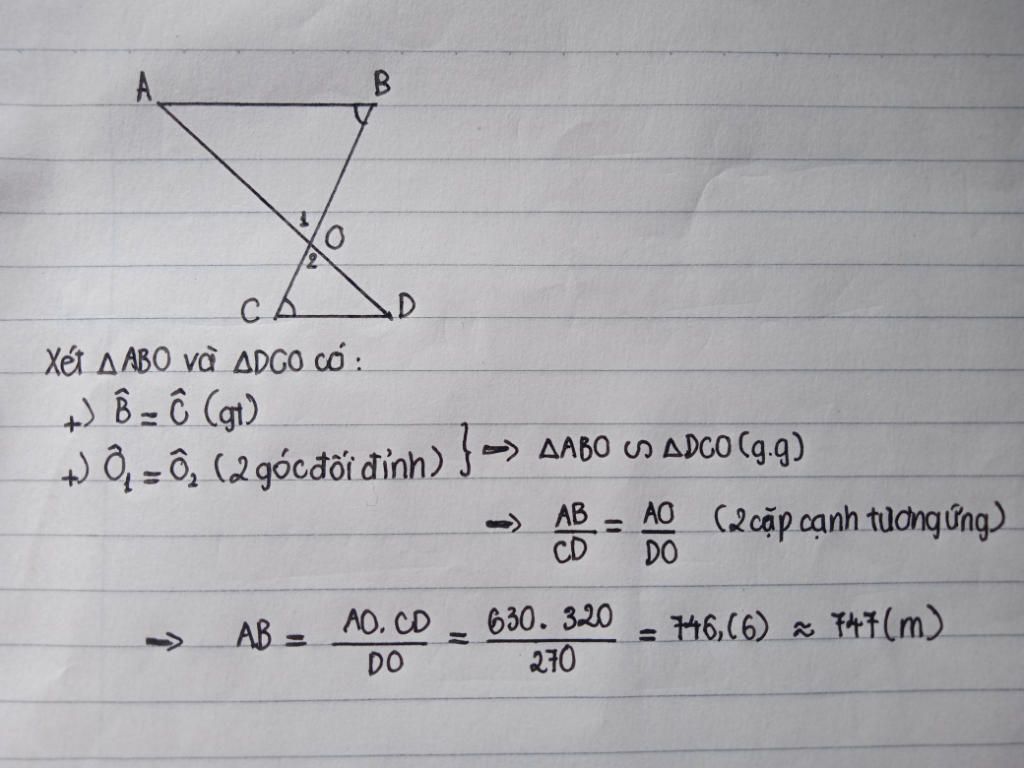 A
B
1
O
2
C
D
Xét △ABO và △DCO có:
+) B̂ = Ĉ (gt)
+) Ô₁ = Ô₂ (2 góc đối đỉnh) } → △ABO ∽ △DCO (g.g)
→ AB/CD = AO/DO (2 cặp cạnh tương ứng)
→ AB = AO.CD/DO = 630.320/270 = 746,(6) ≈ 747(m)